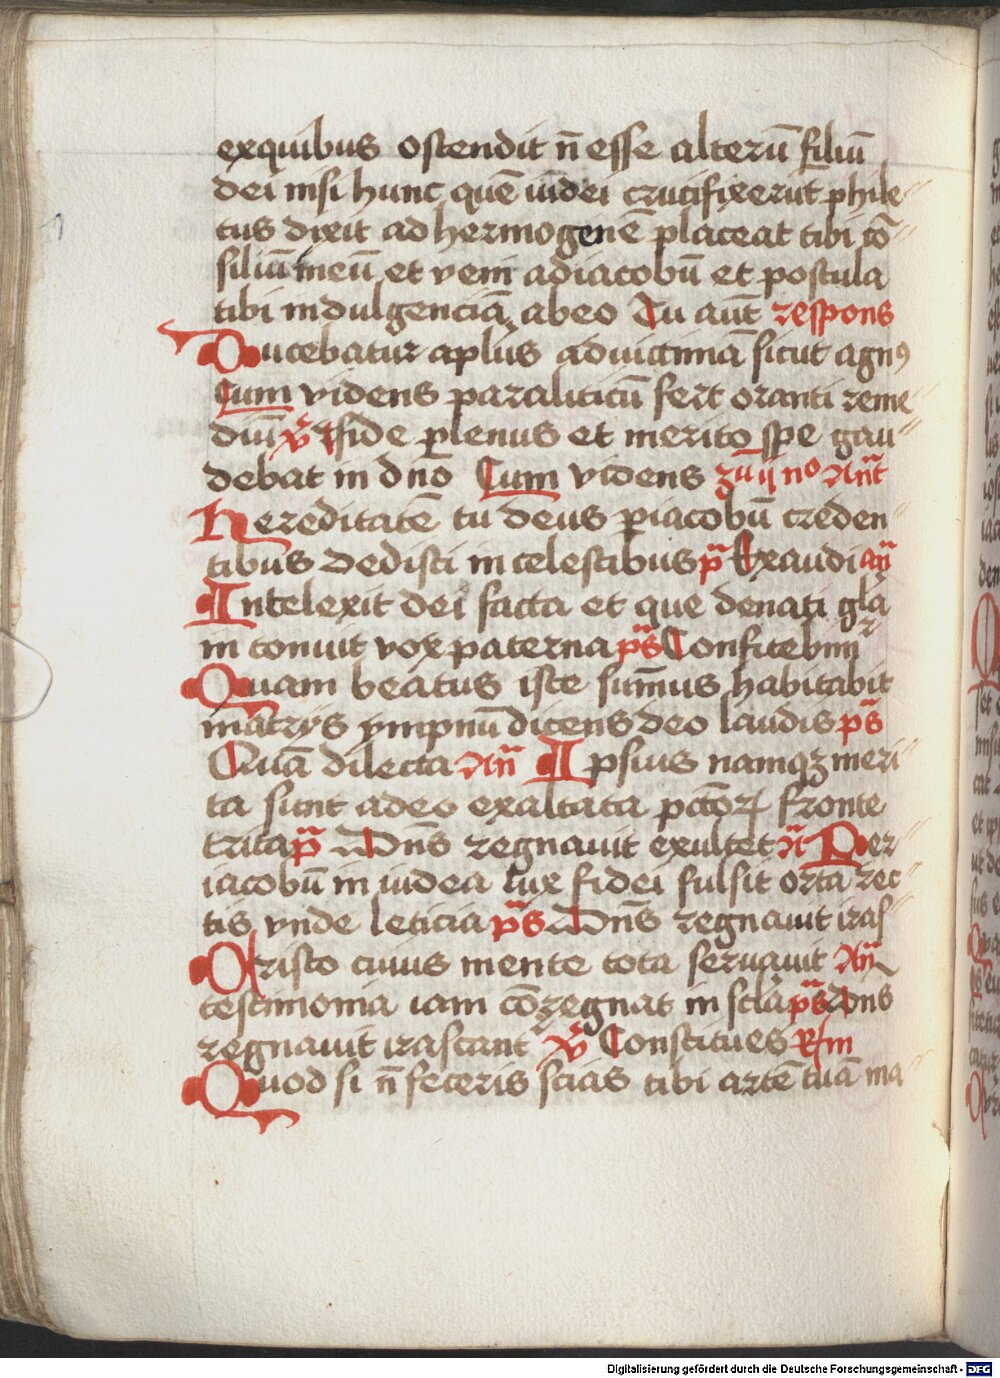 exquibus ostendit n̄ esse alterū filiū
dei nisi hunc quē iudei crucifixerūt phile-
tus dixit ad hermogenē placeat tibi cō-
siliū meū et veni adiacobū et postula
tibi indulgenciā abeo Tu aūt respons
Ducebatur aplūs aduictimā sicut agnꝰ
Cum videns paraliticū fert oranti reme-
diū v̄ ffide plenus et merito spe gau-
debat in dno Cum videns zu ij no Ant̄
Hereditatē tu deus piacobū creden
tibus dedisti in celestibus p̄ Exaudi an̄
Intelexit dei facta et que denati gla
in tonuit vox paterna ps̄ Confitebimr
Quam beatus iste sum̄us habitabit
matrys ympnū dicens deo laudis ps̄
Quā dilecta An̄ Ipsius namqꝫ meri-
ta sunt adeo exaltata pctōꝝ fronte
trita p̄ Dn̄s regnauit exultet A̅ Per
iacobū in iudea lux fidei fulsit orta rec-
tis vnde leticia ps̄ Dn̄s regnauit iras-
Cristo cuius mente tota seruauit An̄
testimonia iam cōregnat in scla ps̄ Dn̄s
regnauit irascant v̄ Constitues R̸m
Quod si n̄ feceris scias tibi artē tuā ma
Digitalisierung gefördert durch die Deutsche Forschungsgemeinschaft - DFG